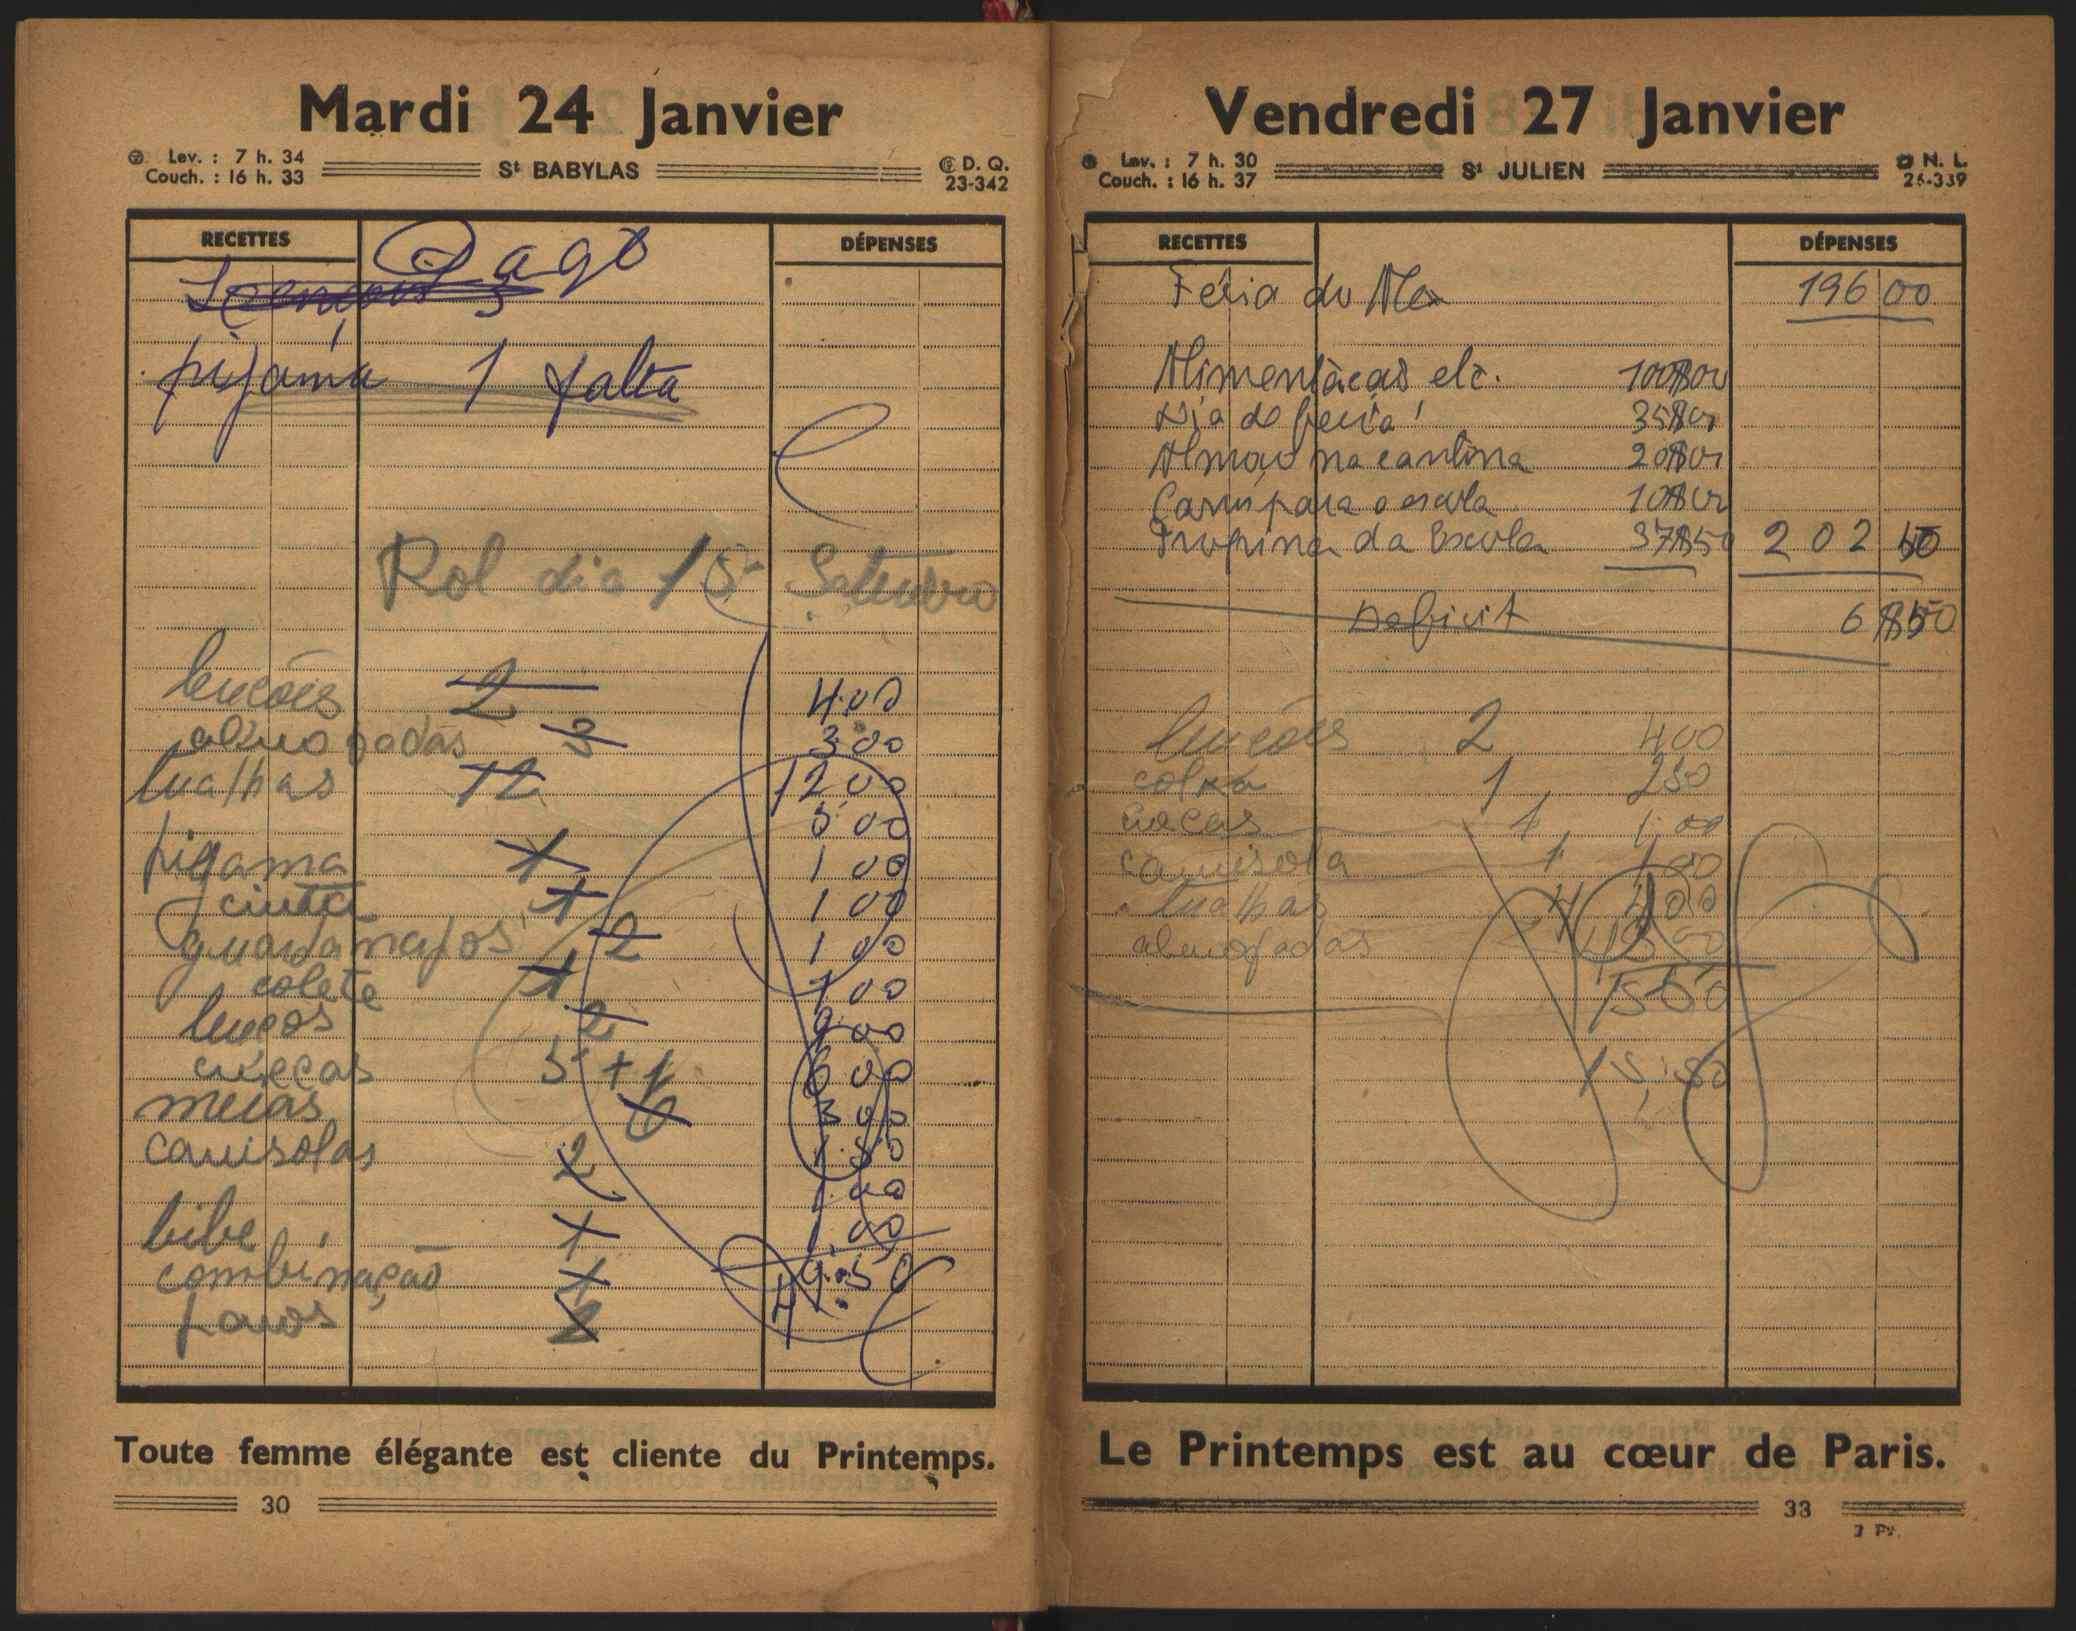 Mardi 24 Janvier
Lev. : 7 h. 34
Couch. : 16 h. 33
St BABYLAS
D. Q.
23-342
RECETTES
DÉPENSES
Pago
Lençois 3
pijáma 1 falta
Rol dia 15 Setembro
lençóes 2 4.00
almofadas 3 3.00
tualhas 12 12 00
5 00
pigama 1 1 00
cinta 1 1 00
guardanapos 2 1 00
colete 1 1 00
lenços 2 00
cuécas 5 + 1 6 00
meias 6 3 00
camisolas 2 1.50
1.00
bibe 1 1.00
combinação 1
panos 2
Toute femme élégante est cliente du Printemps.
30
Vendredi 27 Janvier
Lev. : 7 h. 30
Couch. : 16 h. 37
St JULIEN
N. L.
26-339
RECETTES
DÉPENSES
Féria do Alex 196 00
Alimentação etc. 100$00
Dia de feria 35$00
Almoço na cantina 20$00
Carro para a escola 10$00
Propina da Escola 37$50 202 50
Deficit 6$50
lençóes 2 400
colxa 1 250
cuecas 1 1,00
camisola 1 1 00
tualhas 4 400
almofadas
1550
15.50
Le Printemps est au cœur de Paris.
33